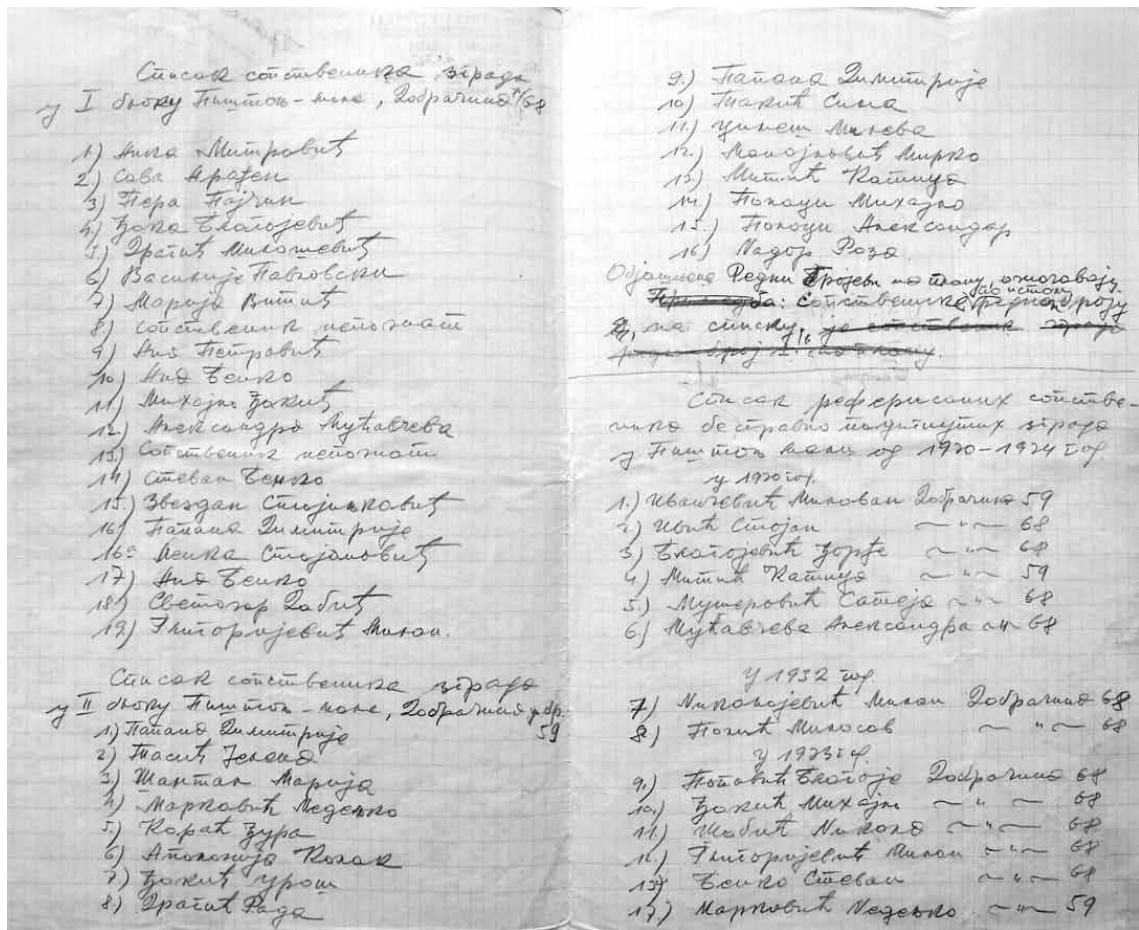 Списак сопственика зграда
у I блоку Пиштољ-мале, Добрачина 68
1.) Ника Митровић
2.) Сава Арађен
3) Пера Пајчин
4.) Ђока Благојевић
5.) Драгић Милошевић
6) Василије Павловски
7.) Марија Витић
8) Сопственик непознат
9) Аца Петровић
10) Аца Бенко
11.) Михајло Ђокић
12.) Александра Мућавчева
13) Сопственик непознат
14) Стеван Бенко
15.) Звездан Стојиљковић
16) Папана Димитрије
16а Ленка Стојановић
17) Аца Бенко
18.) Светозар Дабић
19) Глигоријевић Милан.
Списак сопственика зграда
у II блоку Пиштољ-мале, Добрачина у бр.
59
1.) Папана Димитрије
2) Тасић Јелена
3) Шантак Марија
4) Марковић Недељко
5.) Кораћ Ђура
6) Аполонија Колак
7.) Ђокић Урош
8) Драгић Рада
9.) Папана Димитрије
10) Ђакић Сима
11.) Минева
12.) Манојловић Мирко
13) Митић Катица
14.) Полоци Михајло
15.) Полоци Александар
16) Надор Роза
Објашњење Редни бројеви на плану означавају
Примедба: сопственике по истом редном броју
на списку, је сопственик зграде
редни број 1. по плану.
Списак реферисаних сопстве-
ника бесправно подигнутих зграда
у Пиштољ мали од 1920-1924 год
у 1920 год.
1.) Иванчевић Милован Добрачина 59
2) Ивић Стојан — " — 68
3) Благојевић Ђорђе — " — 68
4) Митић Катица — " — 59
5.) Мушеровић Сатеја — " — 68
6.) Мућавчева Александра — " — 68
У 1932 год.
7) Николајевић Милан Добрачина 68
8) Попић Милосав — " — 68
У 1923 год.
9.) Поповић Благоје Добрачина 68
10.) Ђокић Михајло — " — 68
11.) Шабић Никола — " — 68
12.) Глигоријевић Милан — " — 68
13) Бенко Стеван — " — 68
17.) Марковић Недељко — " — 59